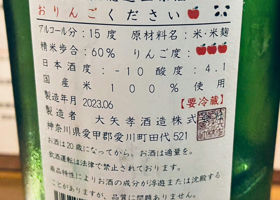 おりんごください
アルコール分：15度 原材料名：米・米麹
精米歩合：60% りんご度：
日本酒度：-10 酸度：4.1
国産米100%使用
製造年月 2023.06 【要冷蔵】
製造者 大矢孝酒造株式
神奈川県愛甲郡愛川町田代521
お酒は20歳になってから。お酒は適量を。
飲酒運転は法律で禁止されております。
商品特性によりお酒の成分が浮遊または沈殿する
ことがありますが、品質に問題ありません。